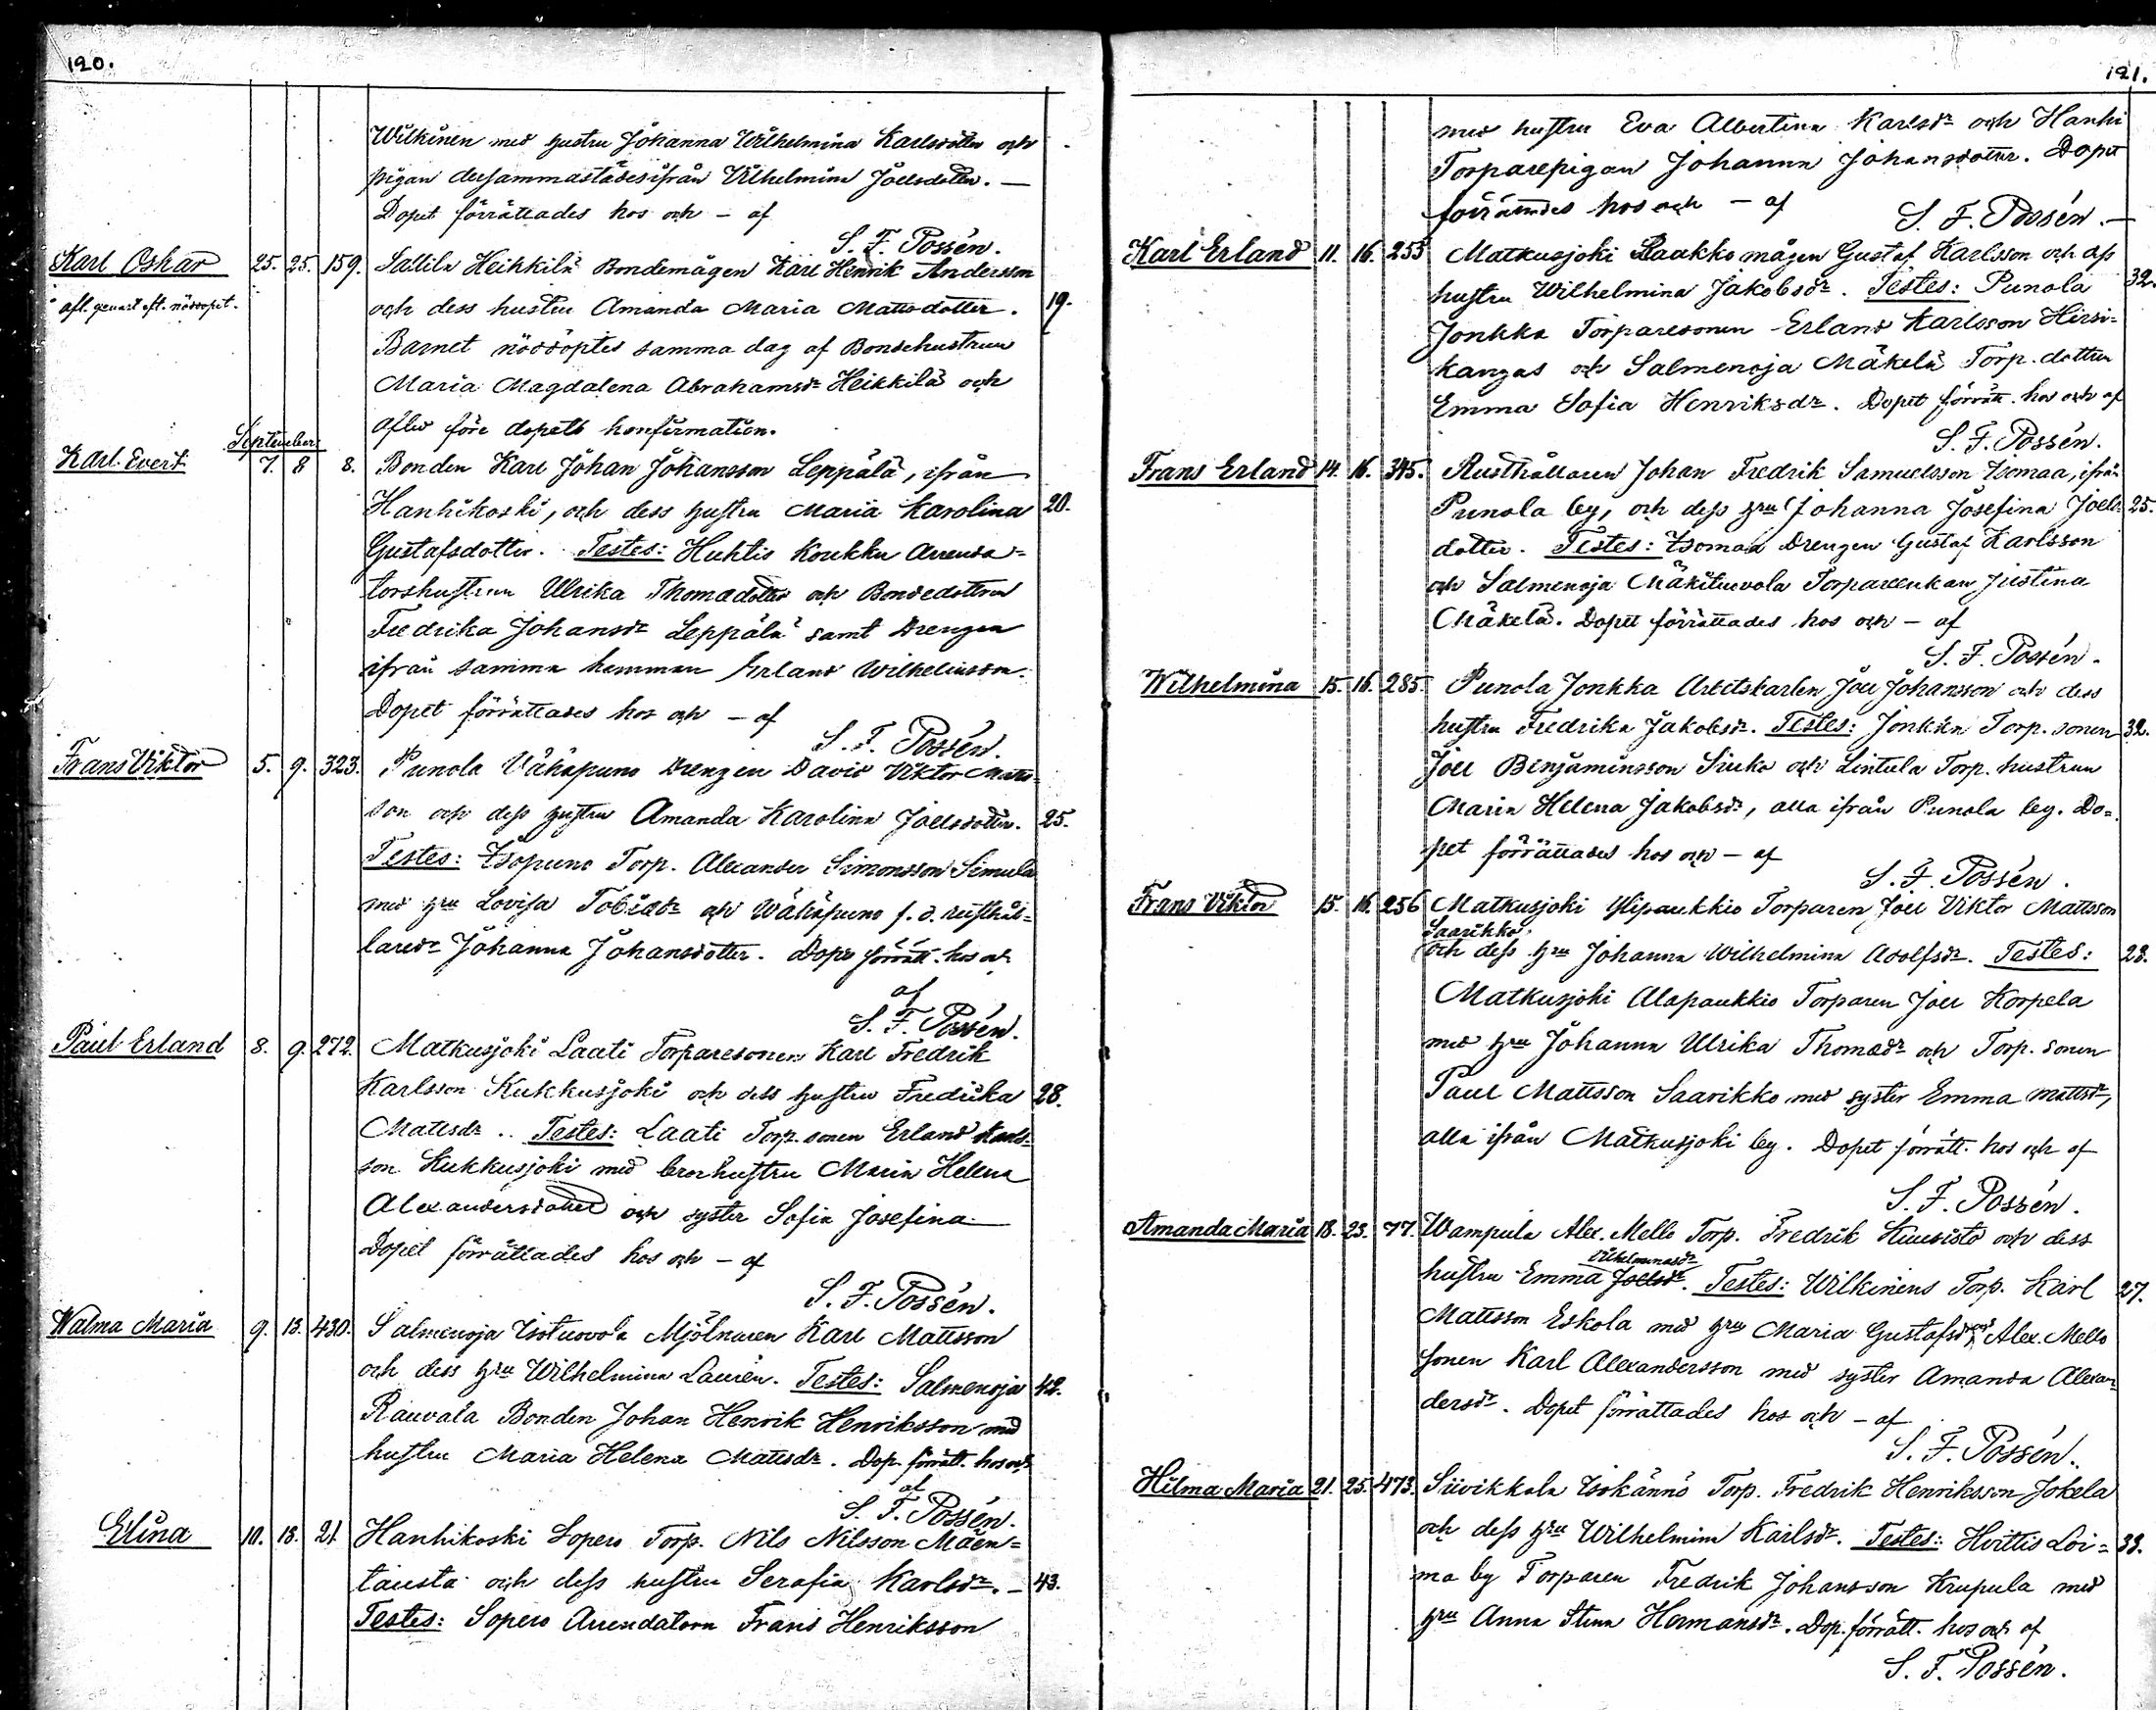 120.
Wilkinen med hustru Johanna Wilhelmina Karlsdotter och
pigan dersammastädes ifrån Vilhelmina Joelsdotter. —
Dopet förrättades hos och – af
S. F. Possén.
Karl Oskar 25. 25. 159. Sallila Heikkilä Bondemågen Karl Henrik Andersson
afl. genast eft. nöddopet. och dess hustru Amanda Maria Mattsdotter. 19.
Barnet nöddöptes samma dag af Bondehustrun
Maria Magdalena Abrahamsdr Heikkilä och
afled före dopets konfirmation.
September
Karl Evert 7. 8 8. Bonden Karl Johan Johansson Leppälä, ifrån
Hanhikoski, och dess hustru Maria Karolina 20.
Gustafsdotter. Testes: Huhtis Koukku Arrenda=
torshustrun Ulrika Thomadotter och Bondedottren
Fredrika Johansdr Leppälä samt Drengen
ifrån samma hemman Erland Wilhelmsson.
Dopet förrättades hos och – af
S. F. Possén.
Frans Viktor 5. 9. 323. Punola Vähäpuno Drengen David Viktor Matts=
son och dess hustru Amanda Karolina Joelsdotter. 25.
Testes: Isopuno Torp. Alexander Simonsson Simula
med hru Lovisa Tobiædr och Wähäpuno f. d. rusthål=
laredr Johanna Johansdotter. Dopet förrätt. hos och
af
S. F. Possén.
Paul Erland 8. 9. 272. Matkusjoki Laati Torparesonen Karl Fredrik
Karlsson Kukkusjoki och dess hustru Fredrika 28.
Mattsdr.. Testes: Laati Torp. sonen Erland Karls=
son Kukkusjoki med brorhustru Maria Helena
Alexandersdotter och syster Sofia Josefina.
Dopet förrättades hos och – af
S. F. Possén.
Walma Maria 9. 13. 430. Salmenoja Isotuovola Mjölnaren Karl Mattsson
och dess hru Wilhelmina Laurén. Testes: Salmenoja 42.
Rauvala Bonden Johan Henrik Henriksson med
hustru Maria Helena Mattsdr. Dop. förrätt. hos och
af
S. F. Possén.
Elina 10. 13. 21. Hanhikoski Sopero Torp. Nils Nilsson Mäen=
tausta och dess hustru Serafia Karlsdr. – 43.
Testes: Sopero Arrendatorn Frans Henriksson
121.
med hustru Eva Albertina Karlsdr och Hanhi
Torparepigan Johanna Johansdotter. Dopet
förrättades hos och – af
S. F. Possén. —
Karl Erland 11. 16. 255 Matkusjoki Raakko mågen Gustaf Karlsson och dess
hustru Wilhelmina Jakobsdr. Testes: Punola 32.
Jonkka Torparesonen Erland Karlsson Hirsi=
kangas och Salmenoja Mäkelä Torp. dottren
Emma Sofia Henriksdr. Dopet förrätt. hos och af
S. F. Possén.
Frans Erland 14. 16. 345. Rusthållaren Johan Fredrik Samuelsson Isomaa, ifrån
Punola by, och dess hru Johanna Josefina Joels 25.
dotter. Testes: Isomaa Drengen Gustaf Karlsson
och Salmenoja Mäkituovola Torpareenkan Justina
Mäkelä. Dopet förrättades hos och – af
S. F. Possén.
Wilhelmina 15. 16. 285. Punola Jonkka Arbetskarlen Joel Johansson och dess
hustru Fredrika Jakobsdr. Testes: Jonkka Torp. sonen 32.
Joel Benjaminsson Siuko och Lintula Torp. hustrun
Maria Helena Jakobsdr, alla ifrån Punola by. Do=
pet förrättades hos och – af
S. F. Possén.
Frans Viktor 15. 16. 256 Matkusjoki Ylipaukkio Torparen Joel Viktor Mattsson
Saarikko
och dess hru Johanna Wilhelmina Adolfsdr. Testes: 23.
Matkusjoki Alapaukkio Torparen Joel Korpela
med hru Johanna Ulrika Thomædr och Torp. sonen
Paul Mattsson Saarikko med syster Emma Mattsdr,
alla ifrån Matkusjoki by. Dopet förrätt. hos och af
S. F. Possén.
Amanda Maria 18. 23. 77. Wampula Alex. Mello Torp. Fredrik Kuusisto och dess
Vilhelminasdr
hustru Emma Joelsdr. Testes: Wilkinens Torp. Karl 27.
Mattsson Eskola med hru Maria Gustafsdr och Alex. Mello
sonen Karl Alexandersson med syster Amanda Alexan=
dersdr. Dopet förrättades hos och – af
S. F. Possén.
Hilma Maria 21. 25. 473. Siivikkala Isokännö Torp. Fredrik Henriksson Jokela
och dess hru Wilhelmina Karlsdr. Testes: Hvittis Loi= 33.
ma by Torparen Fredrik Johansson Krupula med
hru Anna Stina Hermansdr. Dop. förrätt. hos och af
S. F. Possén.